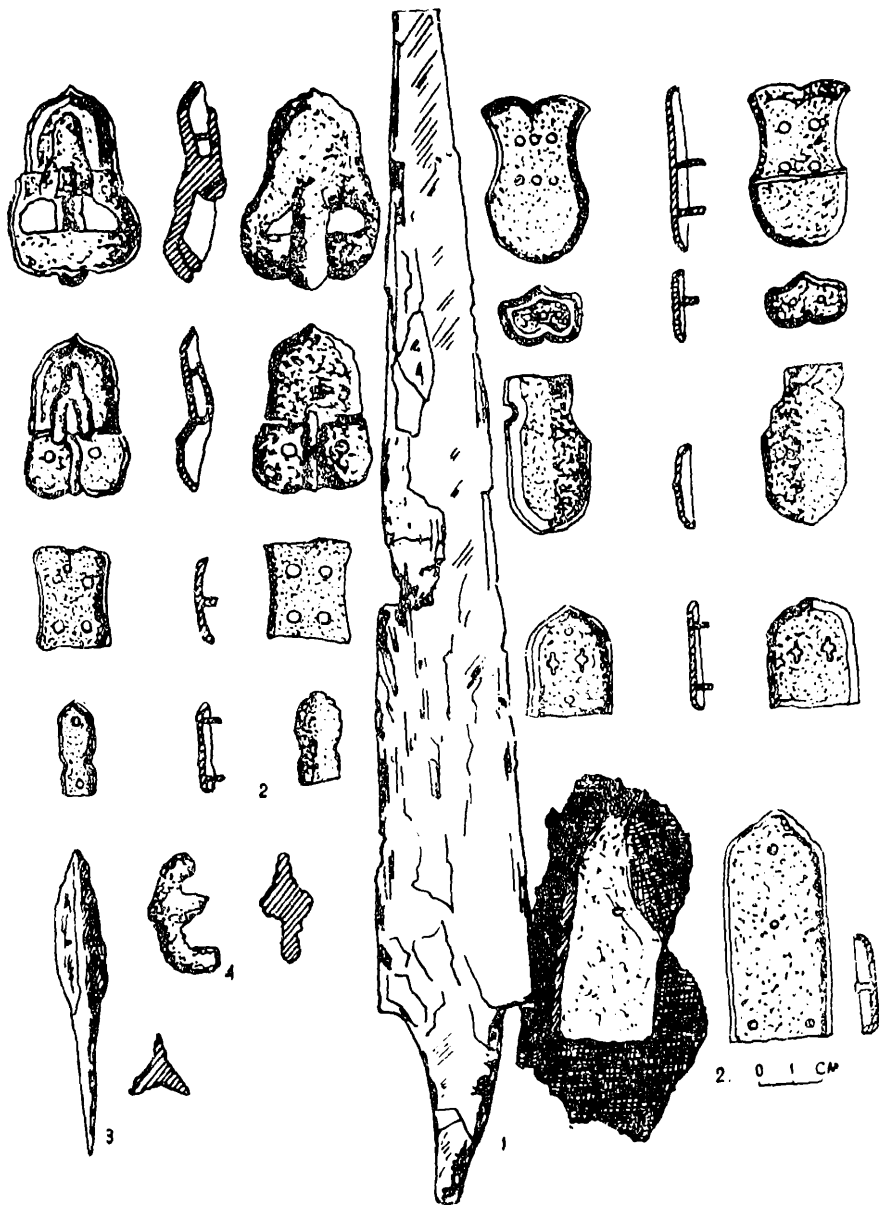 2
4
3
1
2. 0 1 СМ